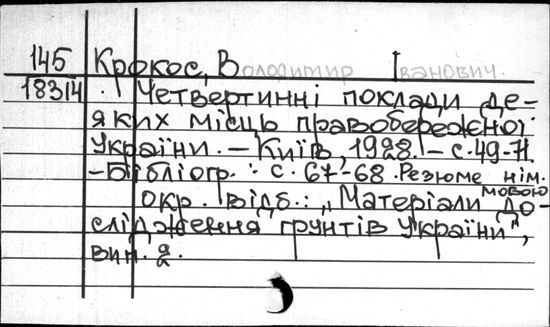 145 Крокос, Володимир Іванович.
18314 Четвертинні поклади де-
яких місць правобережної
України. – Київ, 1928. – с. 49-71.
– Бібліогр.: с. 67-68. Резюме нім.
мовою
Окр. відб.: „Матеріали до-
слідження ґрунтів України",
вип. 2.